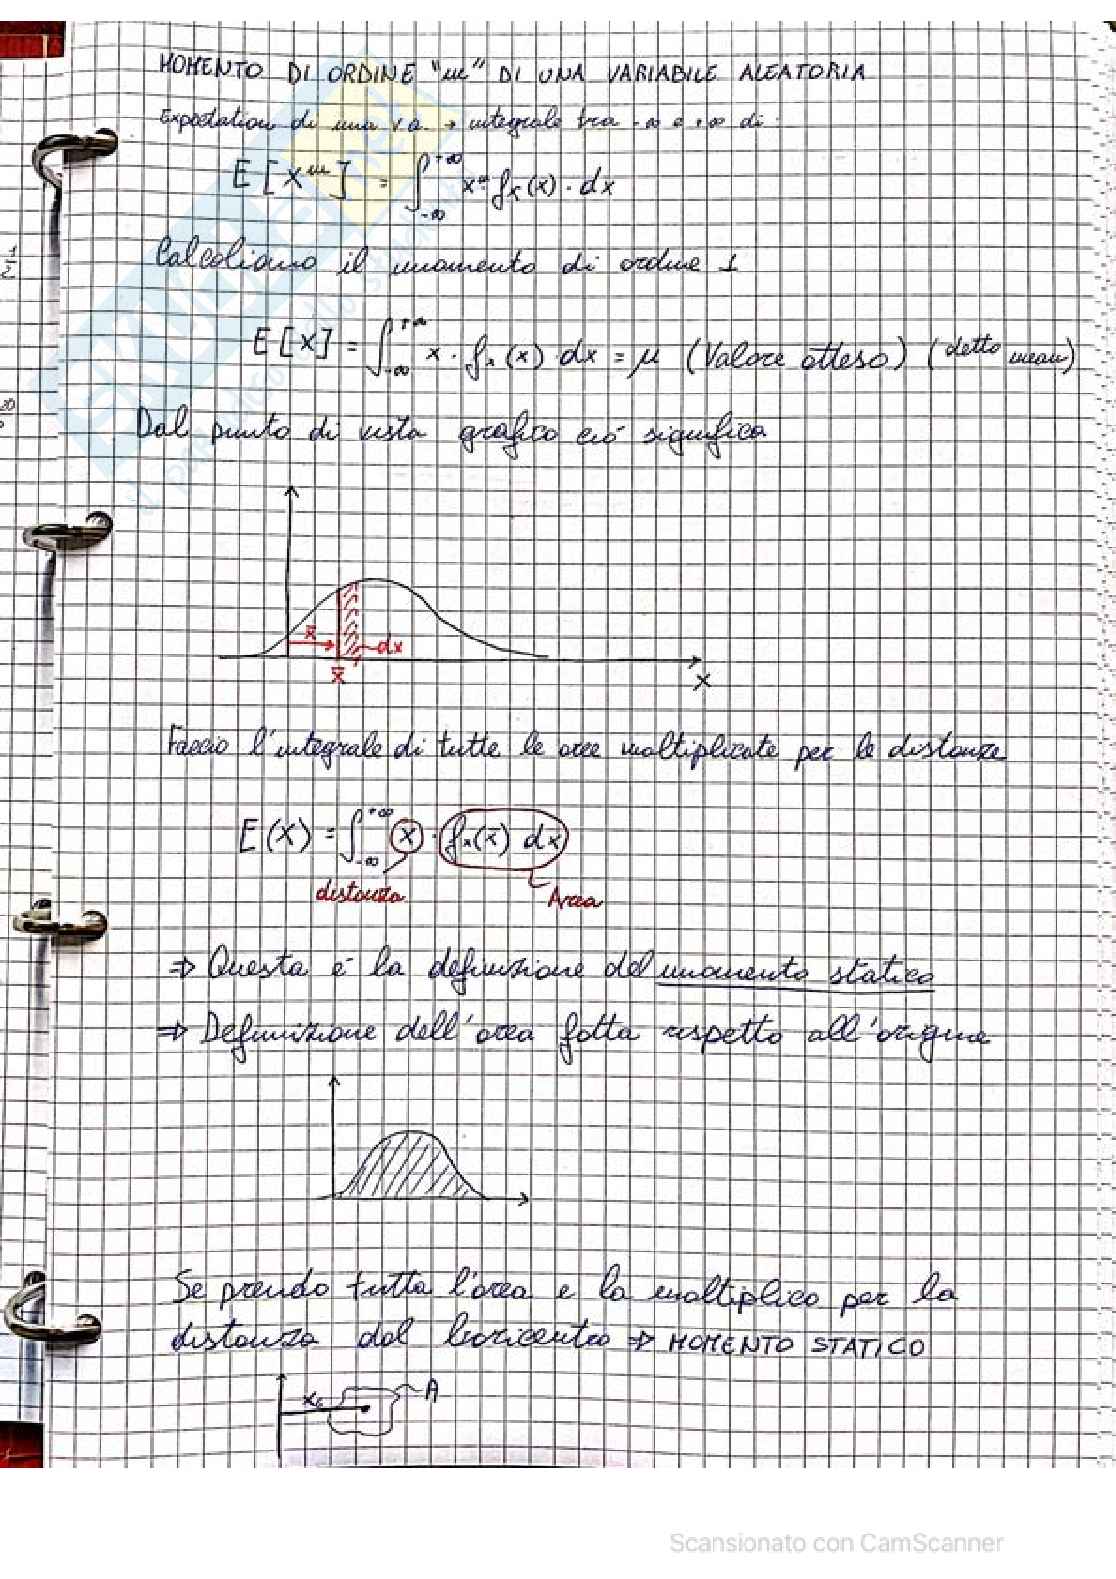 MOMENTO DI ORDINE "m" DI UNA VARIABILE ALEATORIA
Expectation di una v.a. → integrale tra -∞ e +∞ di:
E[X^m] = ∫_{-∞}^{+∞} x^m f_x(x) · dx
Calcoliamo il momento di ordine 1
E[X] = ∫_{-∞}^{+∞} x · f_x(x) · dx = μ (Valore atteso) (detto mean)
Dal punto di vista grafico ciò significa
x̄
dx
x̄
x
Faccio l'integrale di tutte le aree moltiplicate per le distanze
E(X) = ∫_{-∞}^{+∞} x · f_x(x) dx
distanza
Area
⇒ Questa è la definizione del momento statico
⇒ Definizione dell'area fatta rispetto all'origine
Se prendo tutta l'area e la moltiplico per la
distanza dal baricentro ⇒ MOMENTO STATICO
A
Scansionato con CamScanner